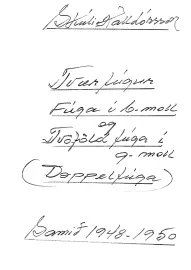 Skúli Halldórsson
Tvær fúgur
Fúga í b-moll
og
Tvöföld fúga í
g-moll
(Doppelfúga)
Samið 1948-1950